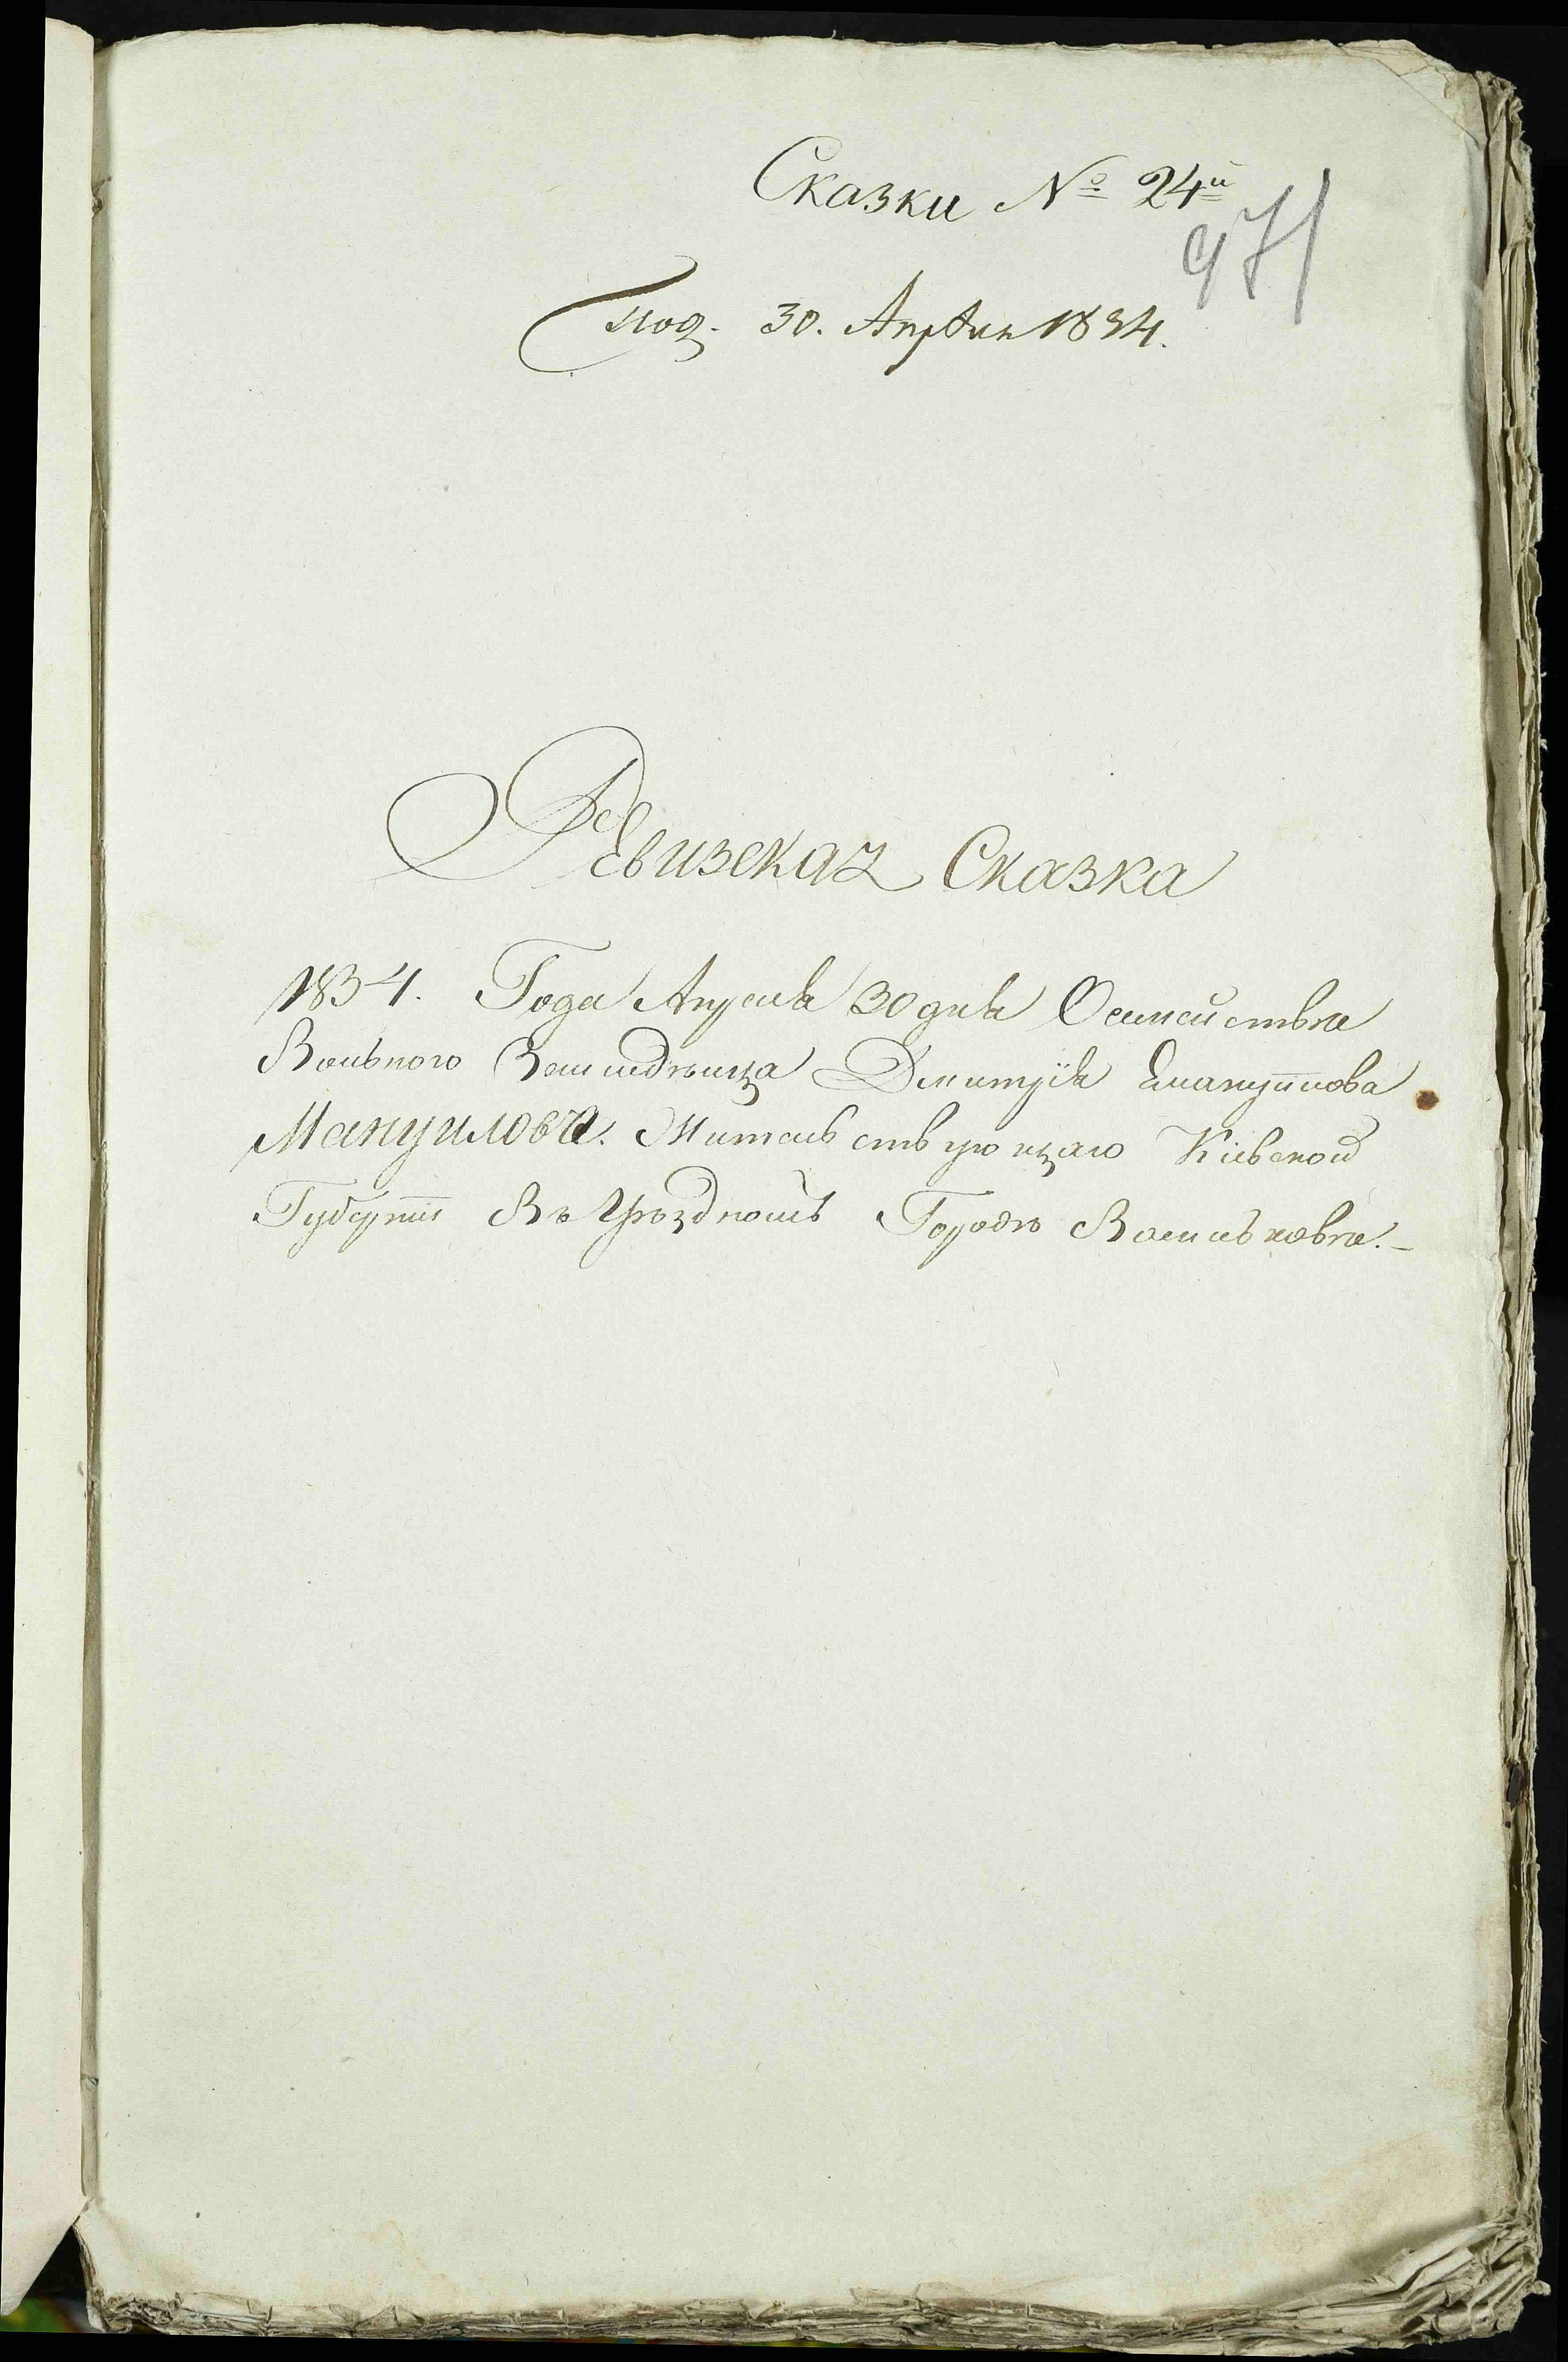 Сказки № 24й
971
Под. 30. Апрѣля 1834.
Ревизская Сказка
1834. Года Апреля 30 дня О семействѣ
Вольного Земледѣлца Дмитрія Емануилова
Мануилова. Жительствующаго Кіевской
Губерніи Въ Уѣздномъ Городѣ Василькове.